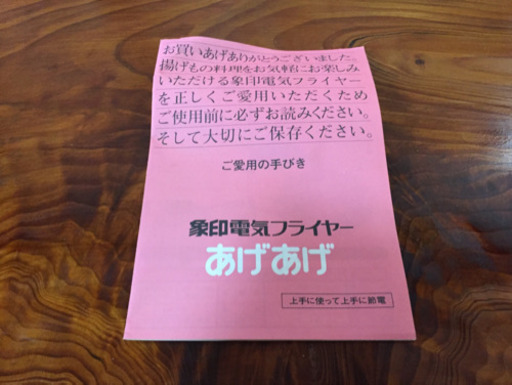 お買いあげありがとうございました。
揚げもの料理をお気軽にお楽しみ
いただける象印電気フライヤー
を正しくご愛用いただくため
ご使用前に必ずお読みください。
そして大切にご保存ください。
ご愛用の手びき
象印電気フライヤー
あげあげ
上手に使って上手に節電